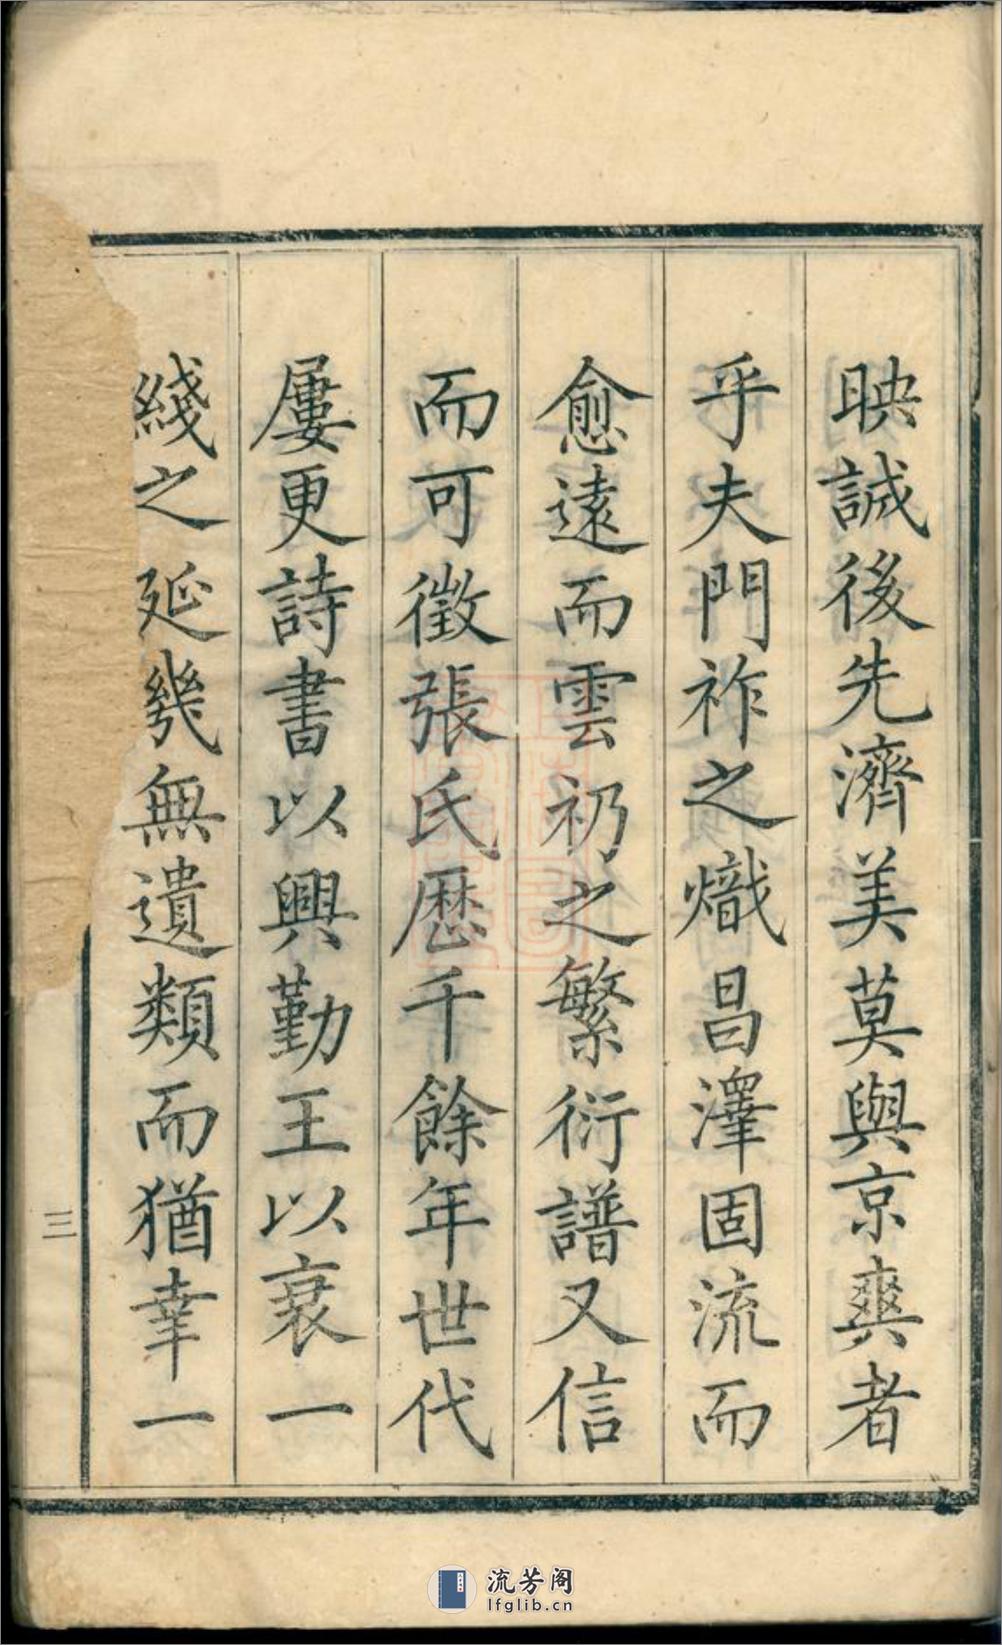 映誠後先濟美莫與京奭者
乎夫門祚之熾昌澤固流而
愈遠而雲礽之繁衍譜又信
而可徵張氏歷千餘年世代
屢更詩書以興勤王以衰一
綫之延幾無遺類而猶幸一
三
流芳阁
lfglib.cn